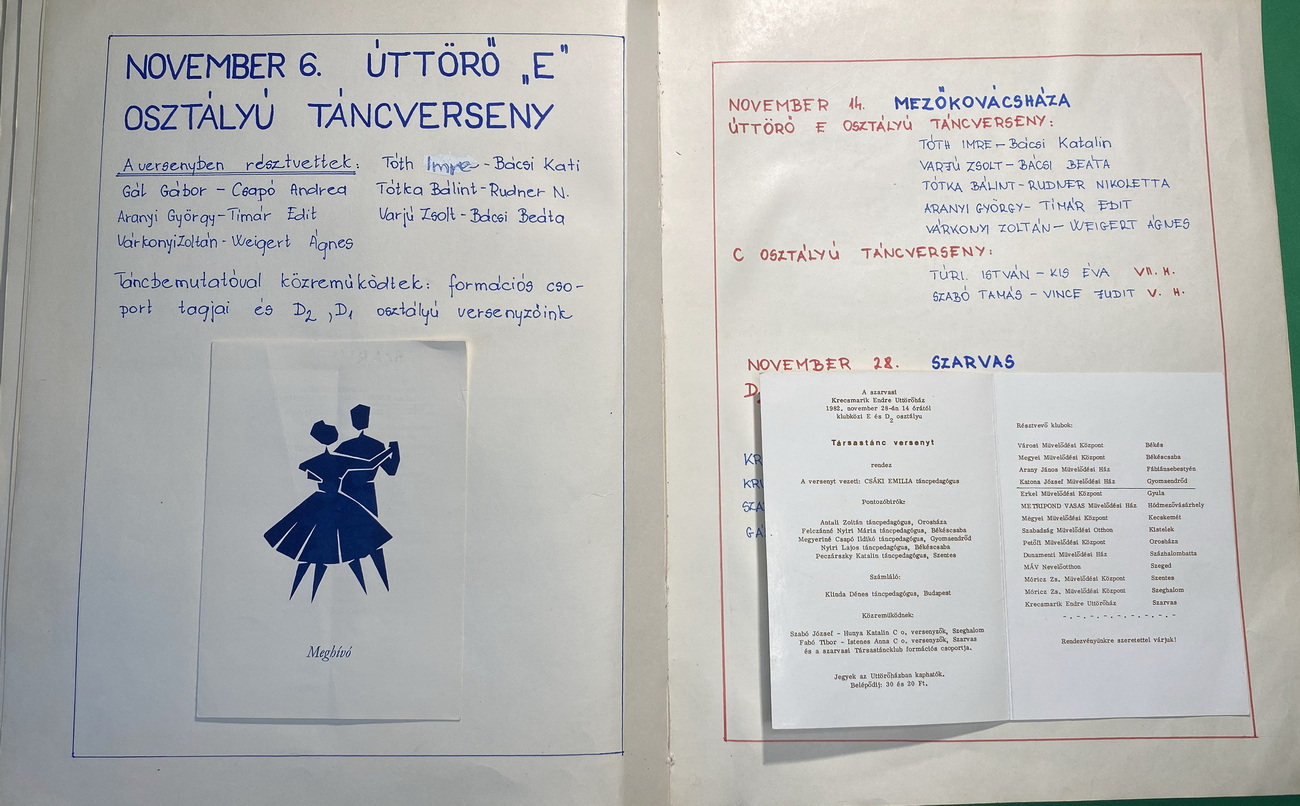 NOVEMBER 6. ÚTTÖRŐ „E"
OSZTÁLYÚ TÁNCVERSENY
A versenyben résztvettek: Tóth Imre - Bácsi Kati
Gál Gábor - Csapó Andrea Tótka Bálint - Rudner N.
Aranyi György - Tímár Edit Varjú Zsolt - Bácsi Beáta
Várkonyi Zoltán - Weigert Ágnes
Táncbemutatóval közreműködtek: formációs cso-
port tagjai és D2, D1 osztályú versenyzőink
Meghívó
NOVEMBER 14. MEZŐKOVÁCSHÁZA
ÚTTÖRŐ E OSZTÁLYÚ TÁNCVERSENY:
TÓTH IMRE - Bácsi Katalin
VARJÚ ZSOLT - BÁCSI BEÁTA
TÓTKA BÁLINT - RUDNER NIKOLETTA
ARANYI GYÖRGY - TÍMÁR EDIT
VÁRKONYI ZOLTÁN - WEIGERT ÁGNES
C OSZTÁLYÚ TÁNCVERSENY:
TÚRI ISTVÁN - KIS ÉVA VII. H.
SZABÓ TAMÁS - VINCE JUDIT V. H.
NOVEMBER 28. SZARVAS
D
KR
KRI
SZA
GÁ
A szarvasi
Krecsmarik Endre Uttörőház
1982, november 28-án 14 órától
klubközi E és D2 osztályu
Társastánc versenyt
rendez
A versenyt vezeti: CSÁKI EMILIA táncpedagógus
Pontozóbirók:
Antali Zoltán táncpedagógus, Orosháza
Felczánné Nyiri Mária táncpedagógus, Békéscsaba
Megyeriné Csapó Ildikó táncpedagógus, Gyomaendrőd
Nyiri Lajos táncpedagógus, Békéscsaba
Peczárszky Katalin táncpedagógus, Szentes
Számláló:
Klinda Dénes táncpedagógus, Budapest
Közreműködnek:
Szabó József - Hunya Katalin C o. versenyzők, Szeghalom
Fabó Tibor - Istenes Anna C o. versenyzők, Szarvas
és a szarvasi Társastáncklub formációs csoportja.
Jegyek az Uttörőházban kaphatók.
Belépődij: 30 és 20 Ft.
Résztvevő klubok:
Városi Müvelődési Központ Békés
Megyei Müvelődési Központ Békéscsaba
Arany János Müvelődési Ház Fábiánsebestyén
Katona József Müvelődési Ház Gyomaendrőd
Erkel Müvelődési Központ Gyula
METRIPOND VASAS Müvelődési Ház Hódmezővásárhely
Megyei Müvelődési Központ Kecskemét
Szabadság Müvelődési Otthon Kistelek
Petőfi Müvelődési Központ Orosháza
Dunamenti Müvelődési Ház Százhalombatta
MÁV Nevelőotthon Szeged
Móricz Zs. Müvelődési Központ Szentes
Móricz Zs. Müvelődési Központ Szeghalom
Krecsmarik Endre Uttörőház Szarvas
Rendezvényünkre szeretettel várjuk!